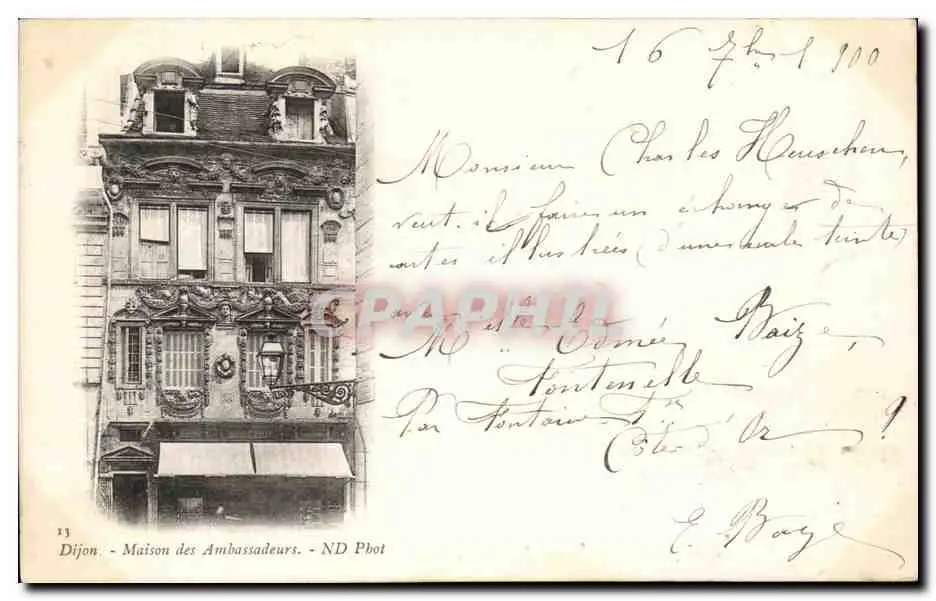 16 7bre 1900
Monsieur Charles Heuschen,
veut-il faire un échange de
cartes illustrées (d'une seule teinte)
avec
Melle Edmée Baize,
Fontenelle
Par Fontaine-Fse
Côte d'Or ?
E. Baize
CPAPHIL
13
Dijon - Maison des Ambassadeurs. - ND Phot